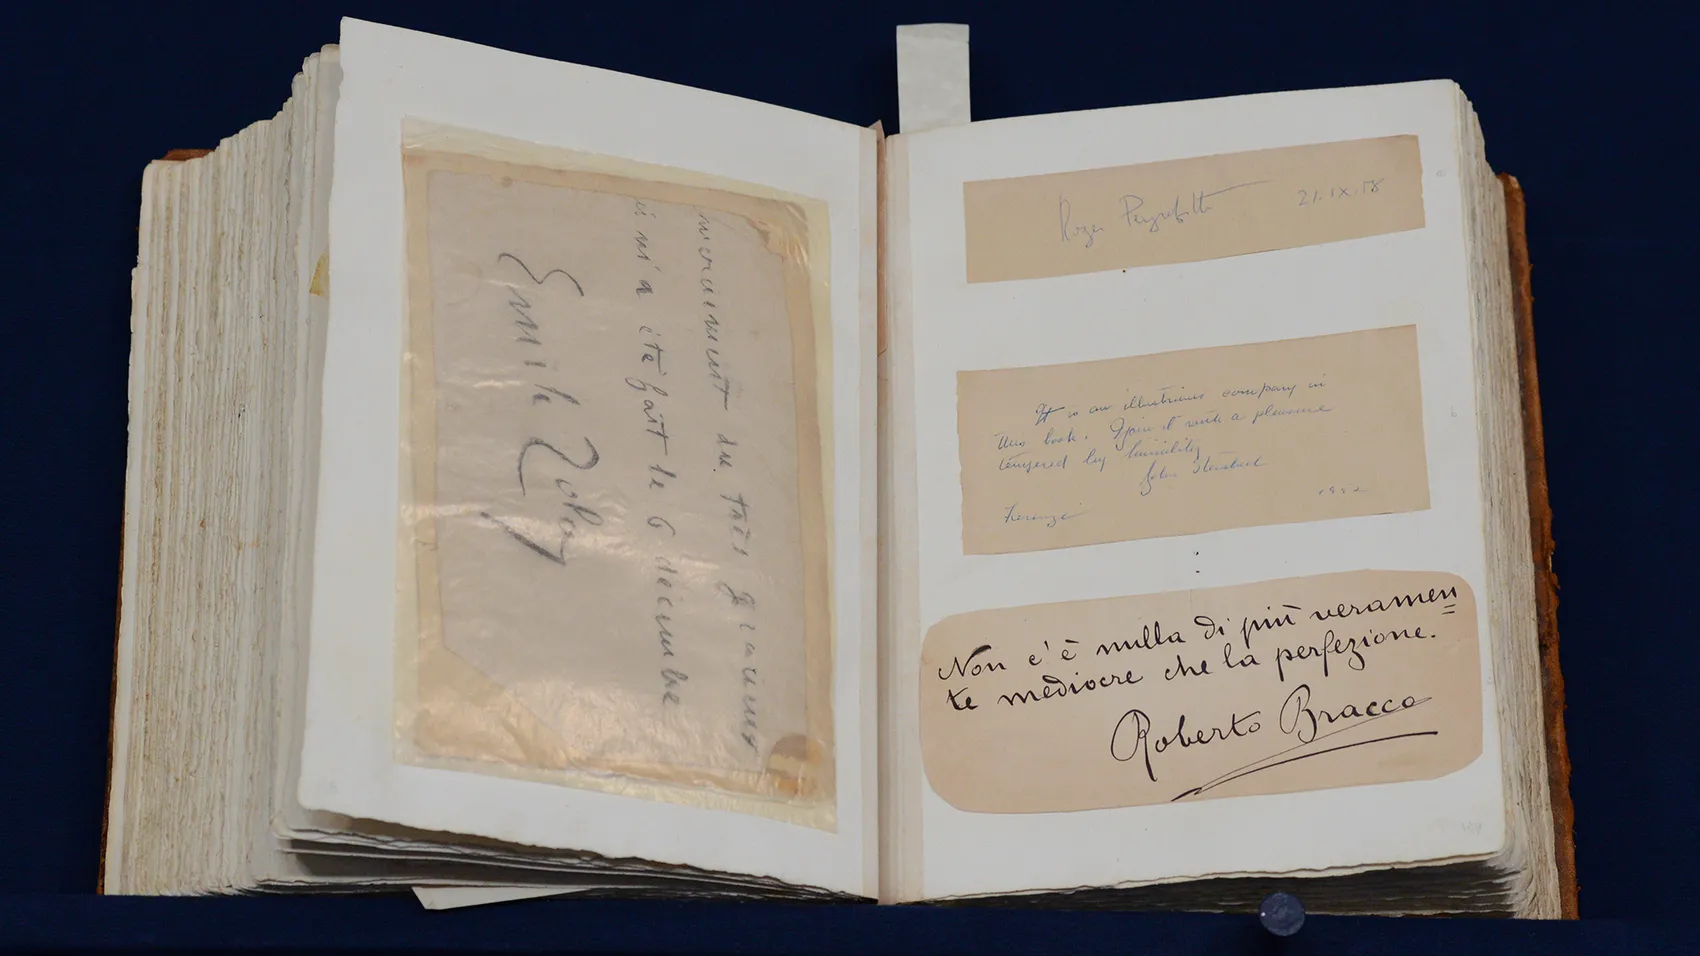 moralement du très gracieux
m'a été fait le 6 décembre
Emile Zola
Roger Peyrefitte 21.IX.58
It is an illustrious company in
this book. I join it with a pleasure
tempered by humility
John Steinbeck
Firenze 1952
Non c'è nulla di più veramen
te mediocre che la perfezione.
Roberto Bracco